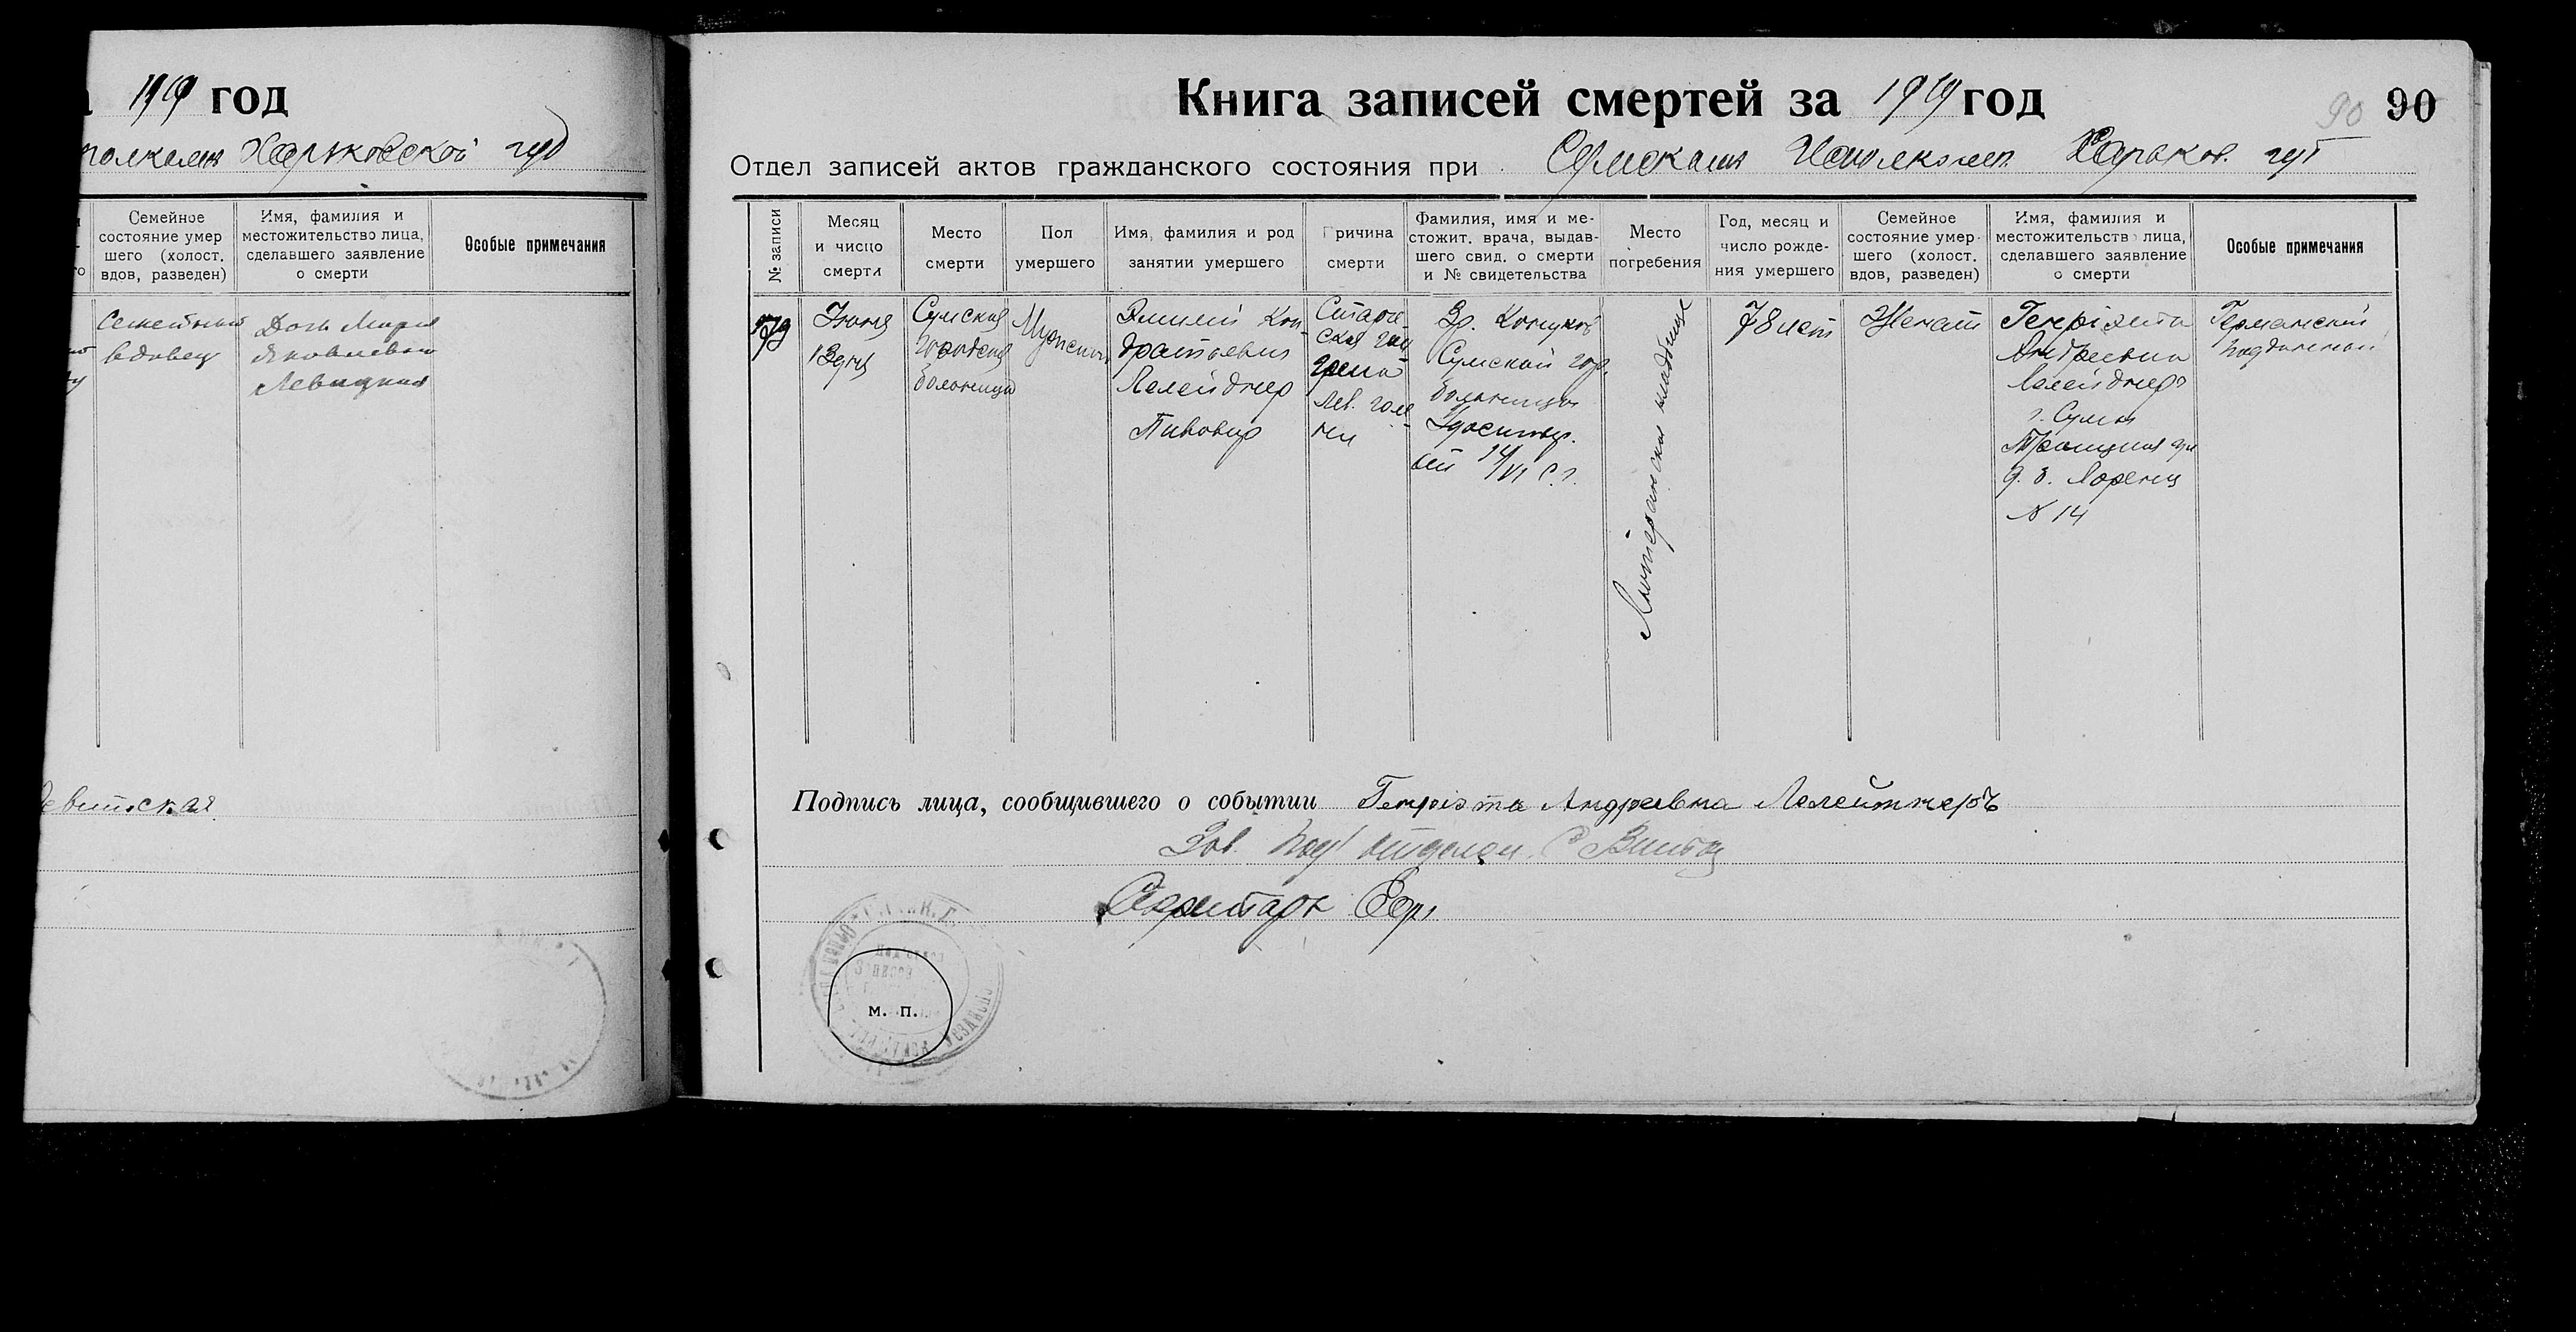 1919 год
Харьковской губ
Семейное
состояние умер
шего (холост.
вдов, разведен)
Имя, фамилия и
местожительство лица,
сделавшего заявление
о смерти
Особые примечания
Семейный
вдовец
Дочь Мария
Яковлевна
Левицкая
Книга записей смертей за 1919 год
90 90
Отдел записей актов гражданского состояния при Сумском Исполкоме Харьков. губ
№ записи
Месяц
и число
смерти
Место
смерти
Пол
умершего
Имя, фамилия и род
занятии умершего
Причина
смерти
Фамилия, имя и ме-
стожит. врача, выдав-
шего свид. о смерти
и № свидетельства
Место
погребения
Год, месяц и
число рожде-
ния умершего
Семейное
состояние умер-
шего (холост.
вдов, разведен)
Имя, фамилия и
местожительство лица,
сделавшего заявление
о смерти
Особые примечания
Июня
13 дня
Сумская
городская
больница
Мужской
Эмилий Кон-
дратьевич
Лелейднер
Пивовар
Старче-
ская ган
грена
лев. голе
ни
Вр.
Сумской гор.
больницы
Удостовер.
от 14/VI с.г.
Лютеранское кладбище
78 лет
Женат
Генріэта
Андреевна
Лелейднер
г. Сумы
Троицкая ул
д. З. Лоренц
№ 14
Германский
подданный
Подпись лица, сообщившего о событии Генріэта Андреевна Лелейтнеръ
Зав. Под отделом
Секретарь
м. п.